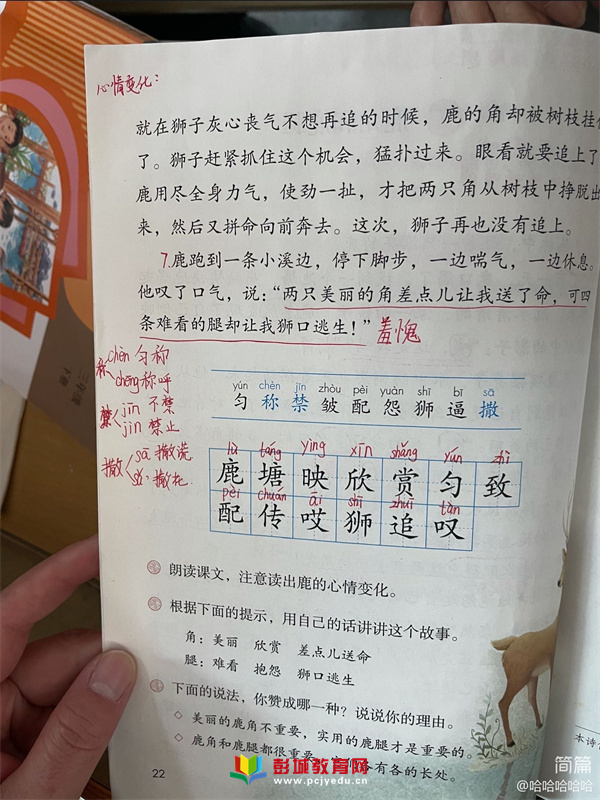 心情变化：
就在狮子灰心丧气不想再追的时候，鹿的角却被树枝挂
了。狮子赶紧抓住这个机会，猛扑过来。眼看就要追上了
鹿用尽全身力气，使劲一扯，才把两只角从树枝中挣脱出
来，然后又拼命向前奔去。这次，狮子再也没有追上。
7.鹿跑到一条小溪边，停下脚步，一边喘气，一边休息。
他叹了口气，说：“两只美丽的角差点儿让我送了命，可四
条难看的腿却让我狮口逃生！”羞愧
称 chèn 匀称
chēng 称呼
禁 jīn 不禁
jìn 禁止
撒 sā 撒谎
撒
yún chèn jīn zhòu pèi yuàn shī bī sā
匀 称 禁 皱 配 怨 狮 逼 撒
lù táng yìng xīn shǎng yún zhì
鹿 塘 映 欣 赏 匀 致
pèi chuán āi shī zhuī tàn
配 传 哎 狮 追 叹
朗读课文，注意读出鹿的心情变化。
根据下面的提示，用自己的话讲讲这个故事。
角：美丽 欣赏 差点儿送命
腿：难看 抱怨 狮口逃生
下面的说法，你赞成哪一种？说说你的理由。
◇ 美丽的鹿角不重要，实用的鹿腿才是重要的。
◇ 鹿角和鹿腿都很重要 各有各的长处。
22
彭城教育网
www.pcjyedu.cn
三年级
下册
本诗
简篇
@哈哈哈哈哈